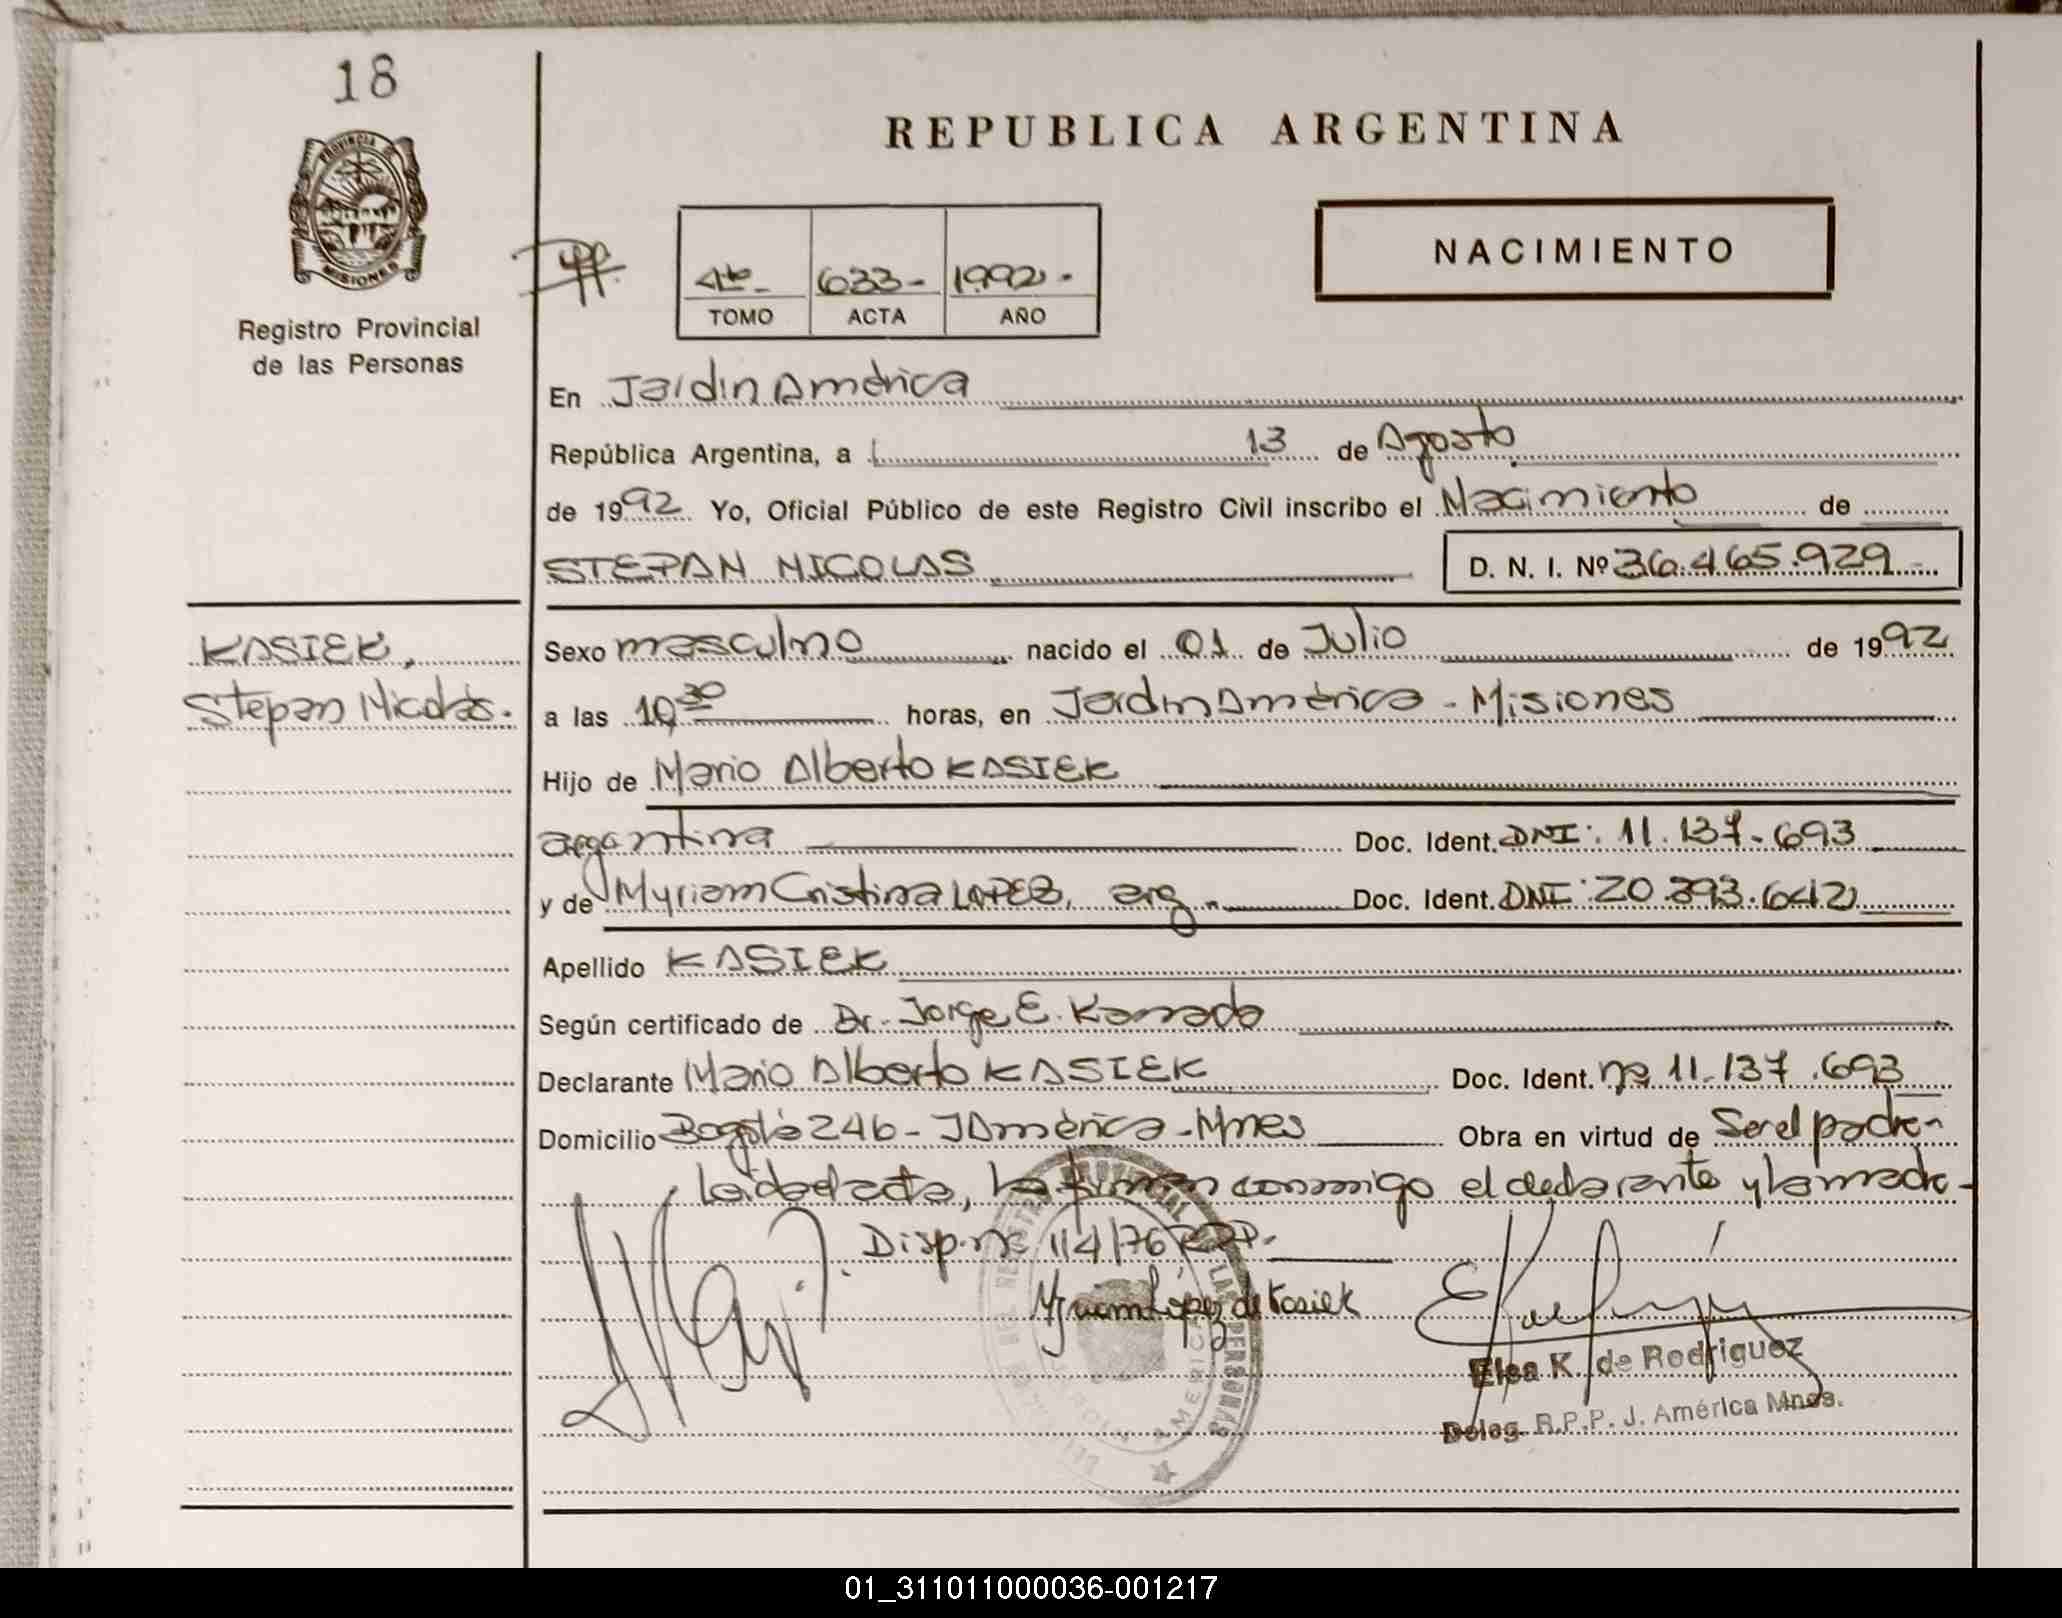 18
REPUBLICA ARGENTINA
PROVINCIA DE
MISIONES
Registro Provincial
de las Personas
NACIMIENTO
4to- 633- 1992-
TOMO ACTA AÑO
En Jardin América
República Argentina, a 13 de Agosto
de 1992 Yo, Oficial Público de este Registro Civil inscribo el Nacimiento de
STEPAN NICOLAS D. N. I. Nº 36.465.929
KASIEK,
Stepan Nicolás.
Sexo masculino nacido el 01 de Julio de 1992
a las 10,30 horas, en Jardin América - Misiones
Hijo de Mario Alberto KASIEK
argentina Doc. Ident. DNI: 11.137.693
y de Myriam Cristina LOPEZ, arg. Doc. Ident. DNI: 20.393.642
Apellido KASIEK
Según certificado de Dr. Jorge E.
Declarante Mario Alberto KASIEK Doc. Ident. 11.137.693
Domicilio Bogotá 246 - J América - Mnes Obra en virtud de Ser el padre-
Leida el acta, la firman conmigo el declarante y la madre-
Disp. nº 114/76 RPP.
Myriam López de Kasiek
Elsa K. de Rodriguez
Deleg. R.P.P. J. América Mnes.
01_311011000036-001217